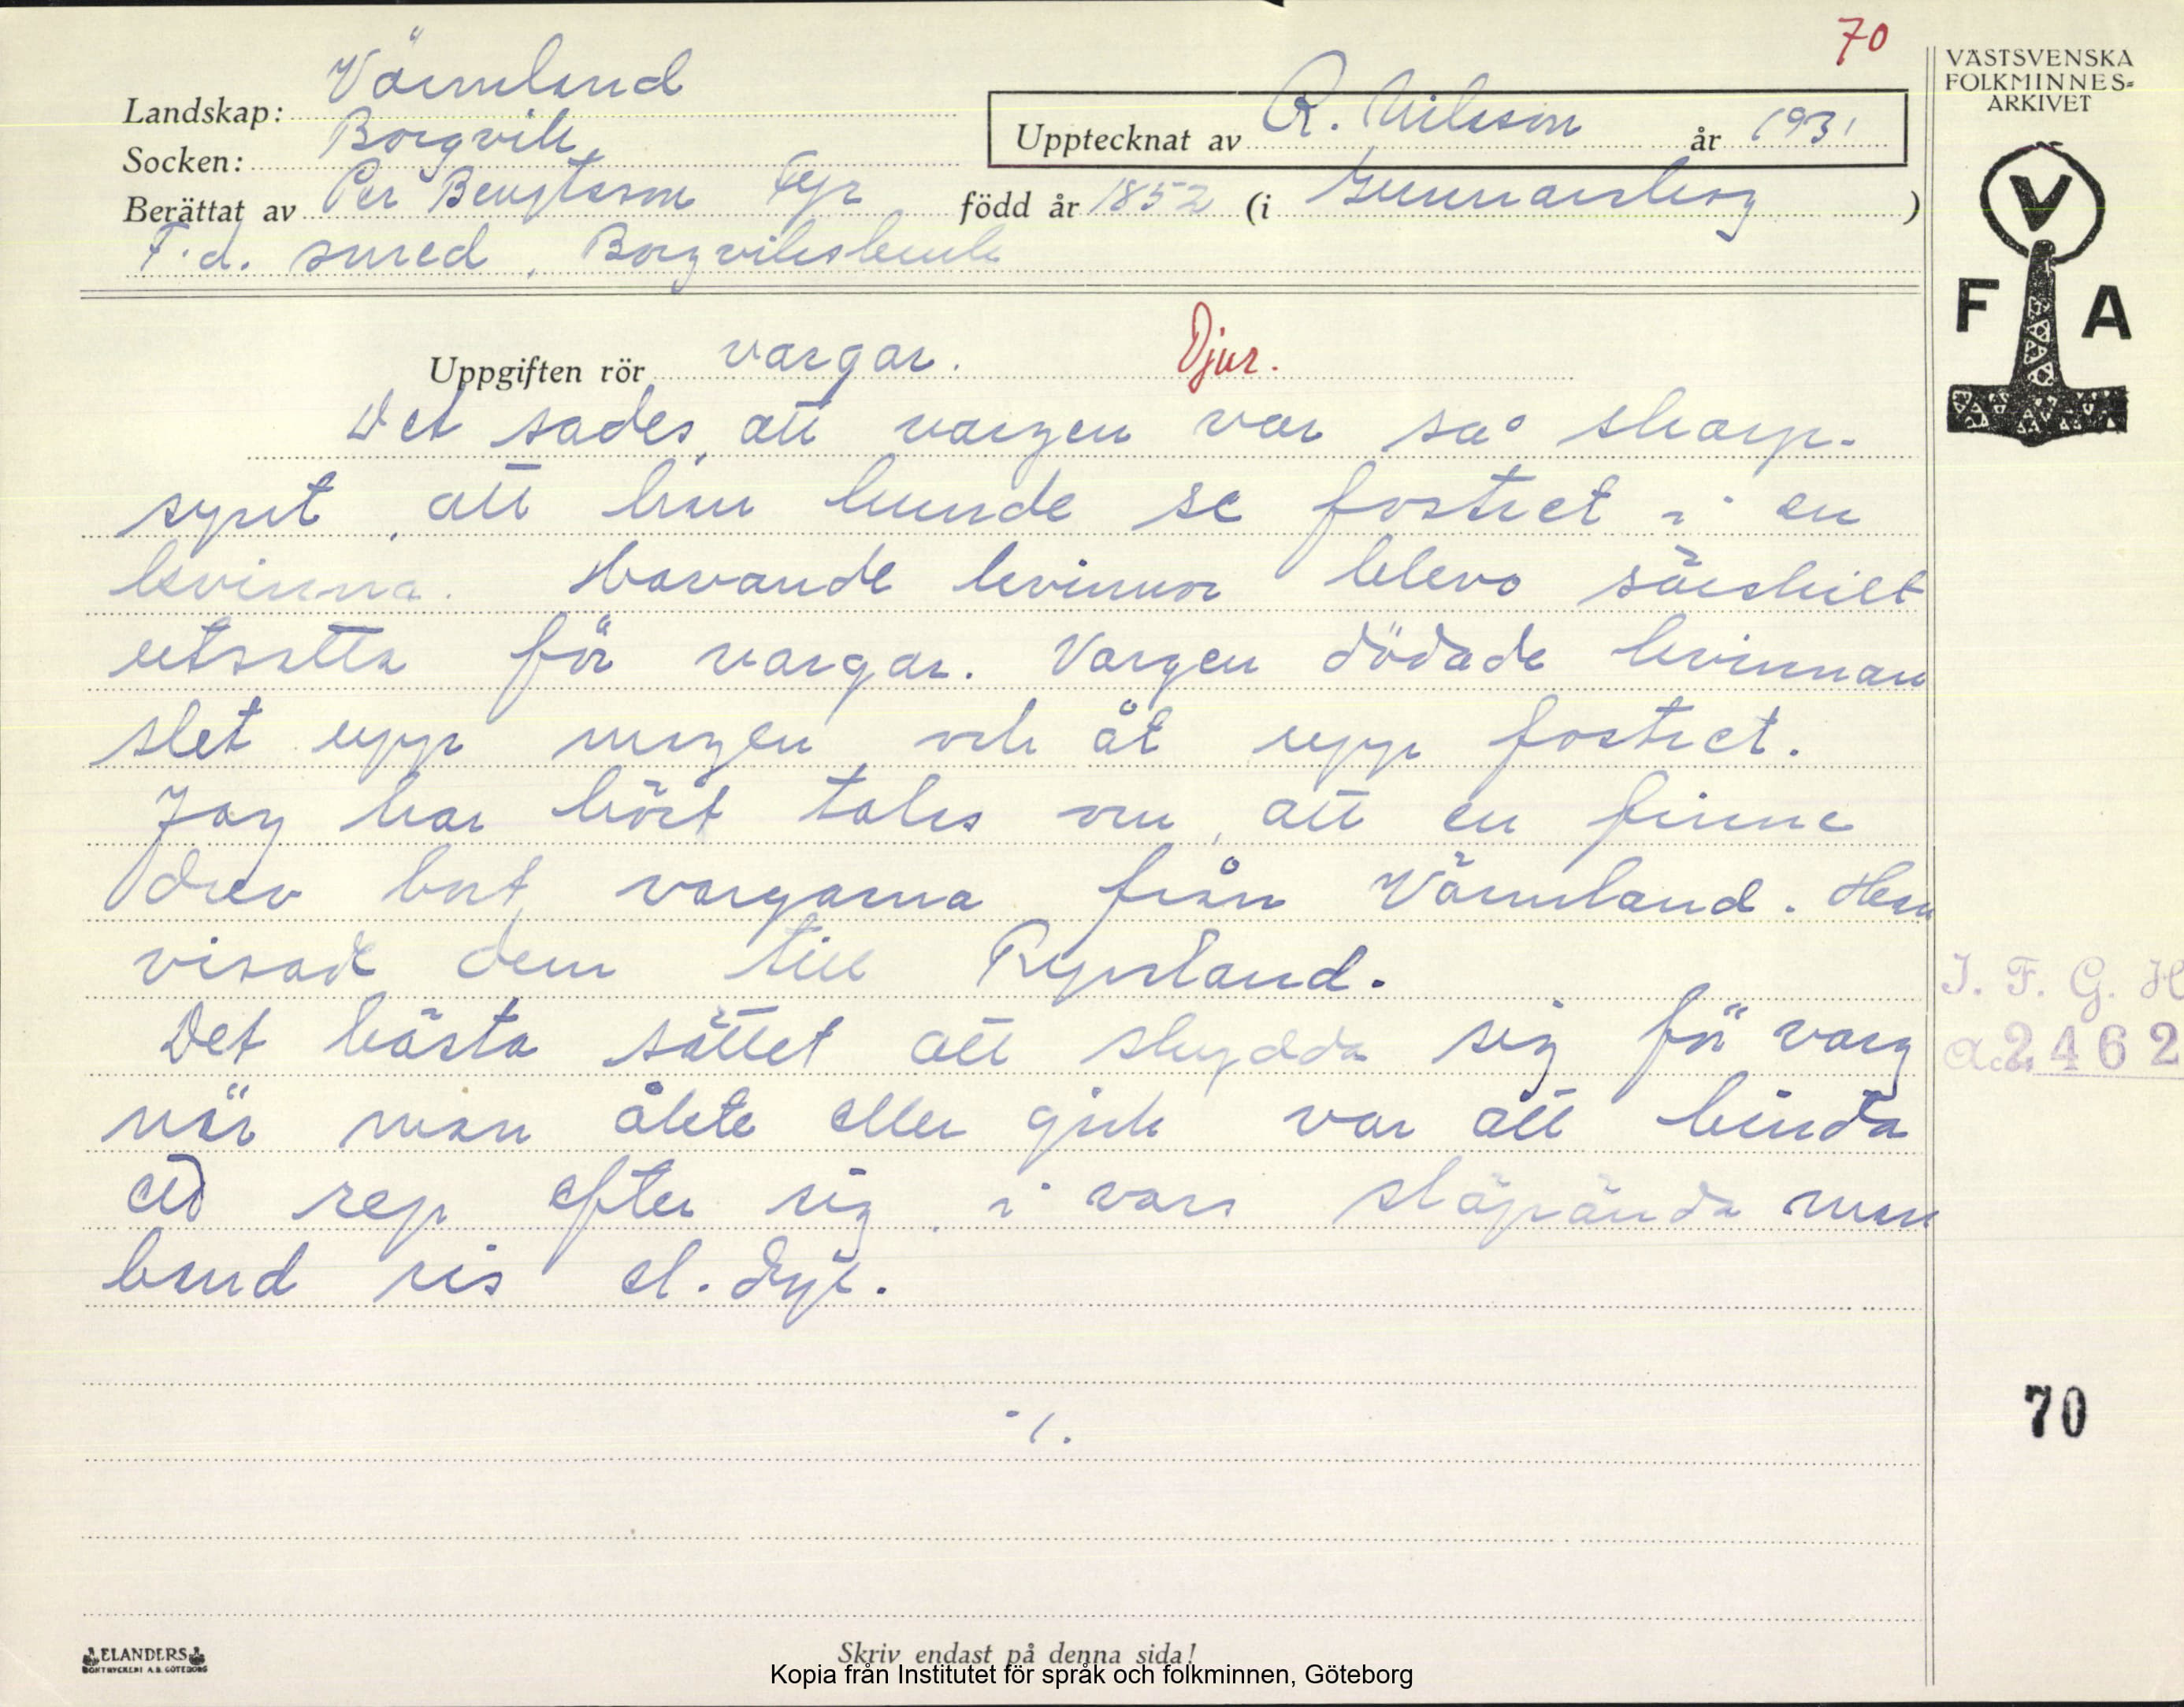 70
VÄSTSVENSKA
FOLKMINNES-
ARKIVET
Landskap: Värmland
Socken: Borgvik
Upptecknat av R. Nilsson år 1931
Berättat av Per Bengtsson Fyr född år 1852 (i Gunnarskog )
F.d. smed, Borgviksbruk
V
F A
Uppgiften rör vargar. Djur.
Det sades, att vargen var så skarp-
synt, att hin kunde se fostret i en
kvinna. Havande kvinnor blevo särskilt
utsatta för vargar. Vargen dödade kvinnan
slet upp magen och åt upp fostret.
Jag har hört talas om, att en finne
drev bort vargarna från Värmland. Han
visade dem till Ryssland.
Det bästa sättet att skydda sig för varg
när man åkte eller gick var att binda
ett rep efter sig, i vars släpända man
band ris el. dyl.
I. F. G. H
Acc. 2462
70
-/.
ELANDERS
BOKTRYCKERI A.B. GÖTEBORG
Skriv endast på denna sida!
Kopia från Institutet för språk och folkminnen, Göteborg